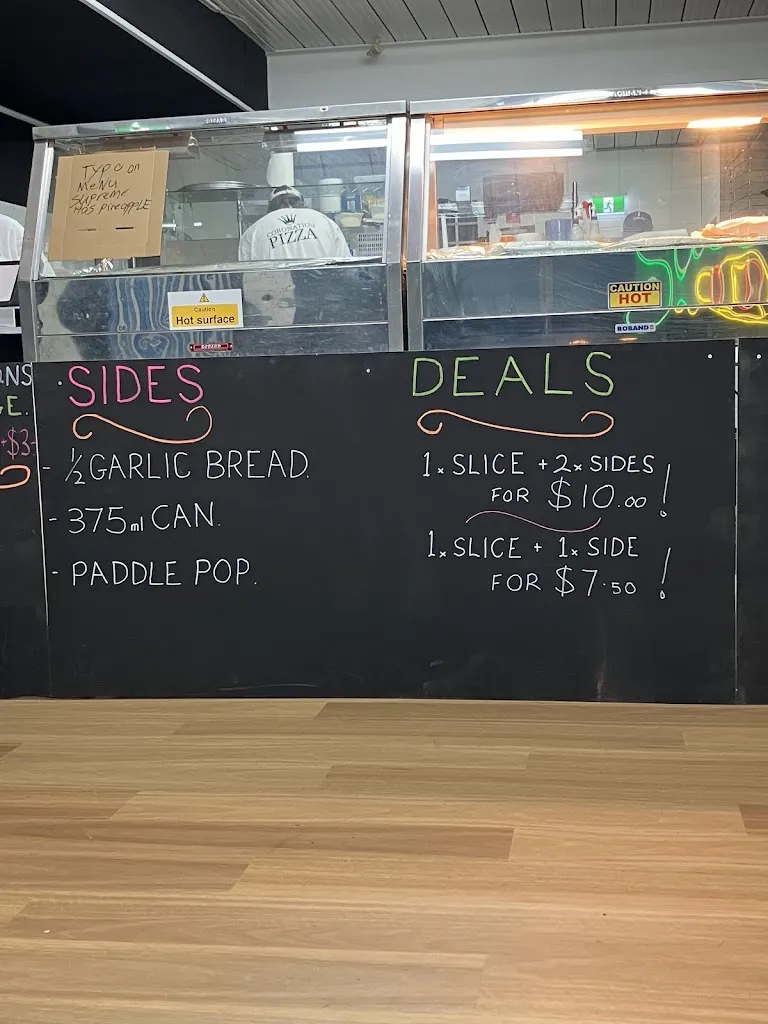 ROBAND
TYPO on
MENU
SUPREME
HAS pineapple
CORONATION
PIZZA
Caution
Hot surface
CAUTION
HOT
ROBAND
NS
E.
+$3-
SIDES
- ½ GARLIC BREAD.
- 375ml CAN.
- PADDLE POP.
DEALS
1x SLICE + 2x SIDES
FOR $10.00!
1x SLICE + 1x SIDE
FOR $7.50!